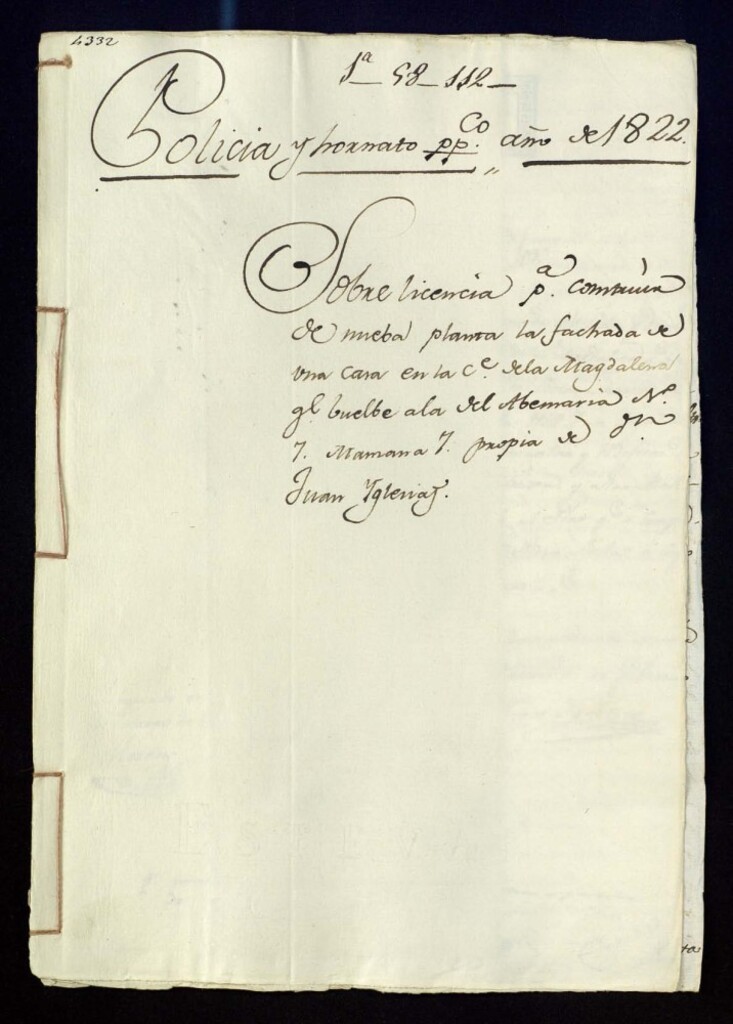 4332
1ª 58-112-
Policia y hornato pp.co año de 1822.
Sobre licencia p.ª construir
de nueba planta la fachada de
una casa en la c.e de la Magdalena
q.e buelbe a la del Abemaria N.º
7. Manzana 7. propia de D.n
Juan Yglesias.